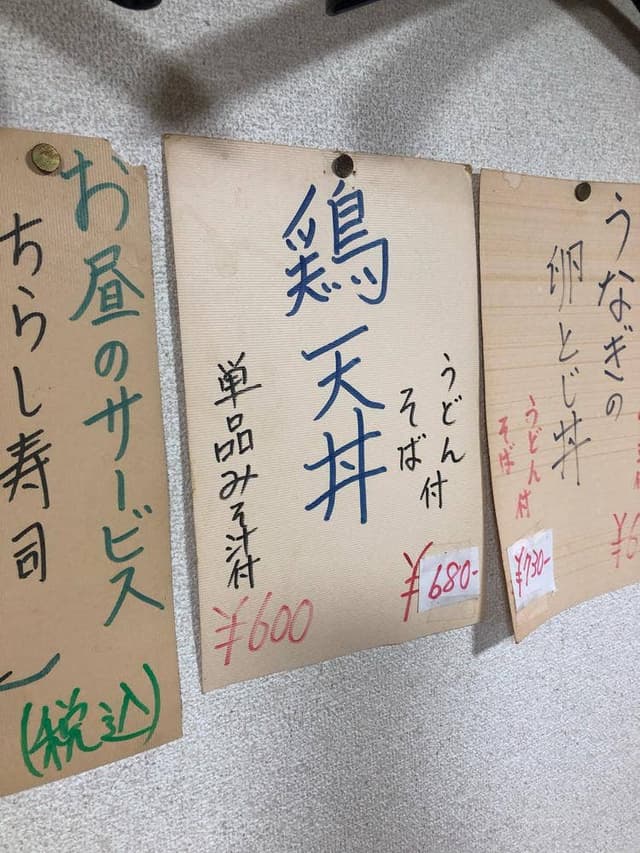 お昼のサービス
ちらし寿司
(税込)
鶏天丼
うどん付
そば
¥680-
単品みそ汁付
¥600
うなぎの
卵とじ丼
うどん付
そば
¥730-